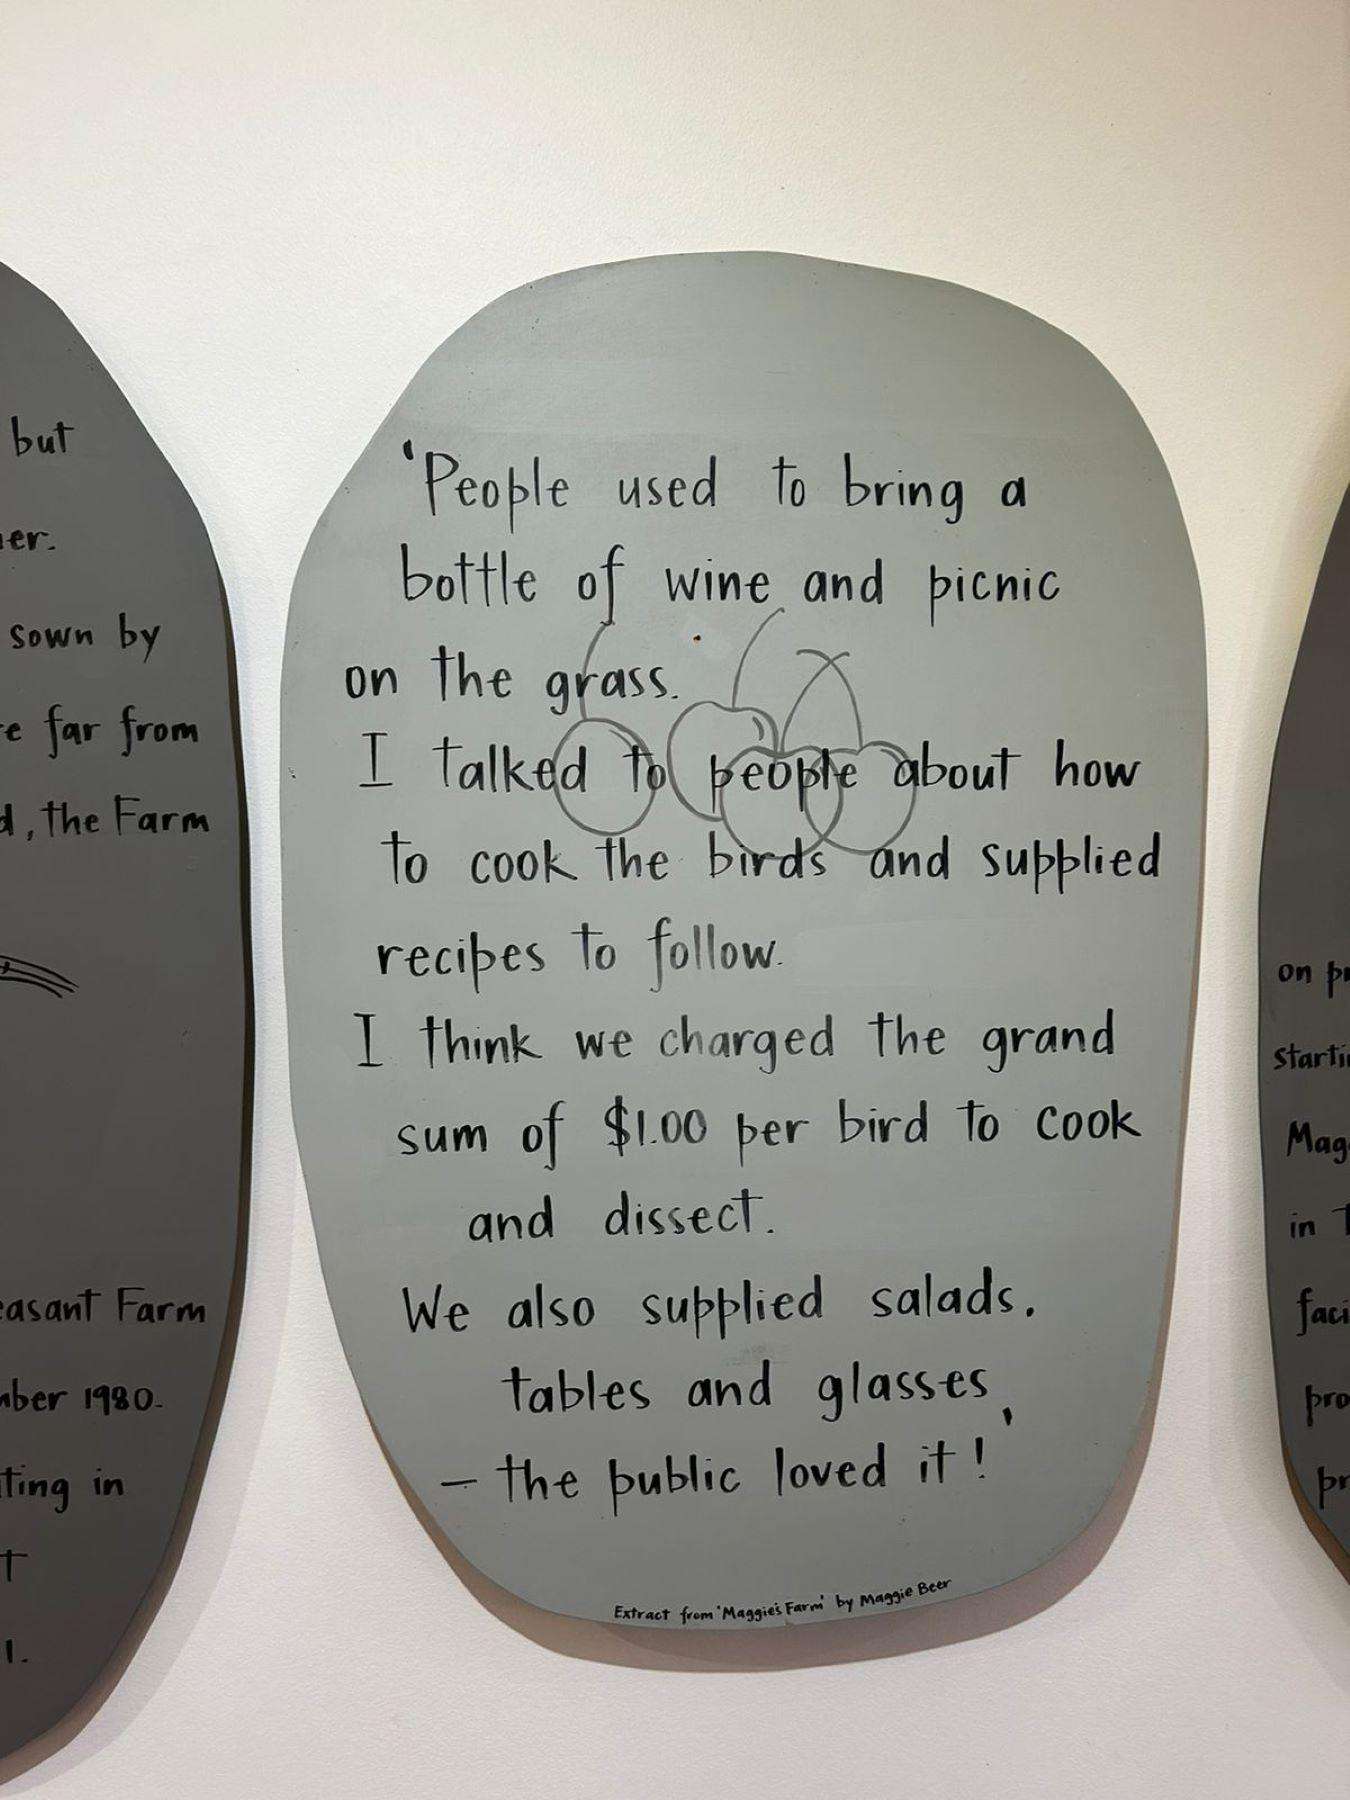 but
sown by
far from
, the Farm
Farm
1980.
in
1.
'People used to bring a
bottle of wine and picnic
on the grass.
I talked to people about how
to cook the birds and supplied
recipes to follow.
I think we charged the grand
sum of $1.00 per bird to cook
and dissect.
We also supplied salads.
tables and glasses
– the public loved it!'
Extract from 'Maggie's Farm' by Maggie Beer
on
in